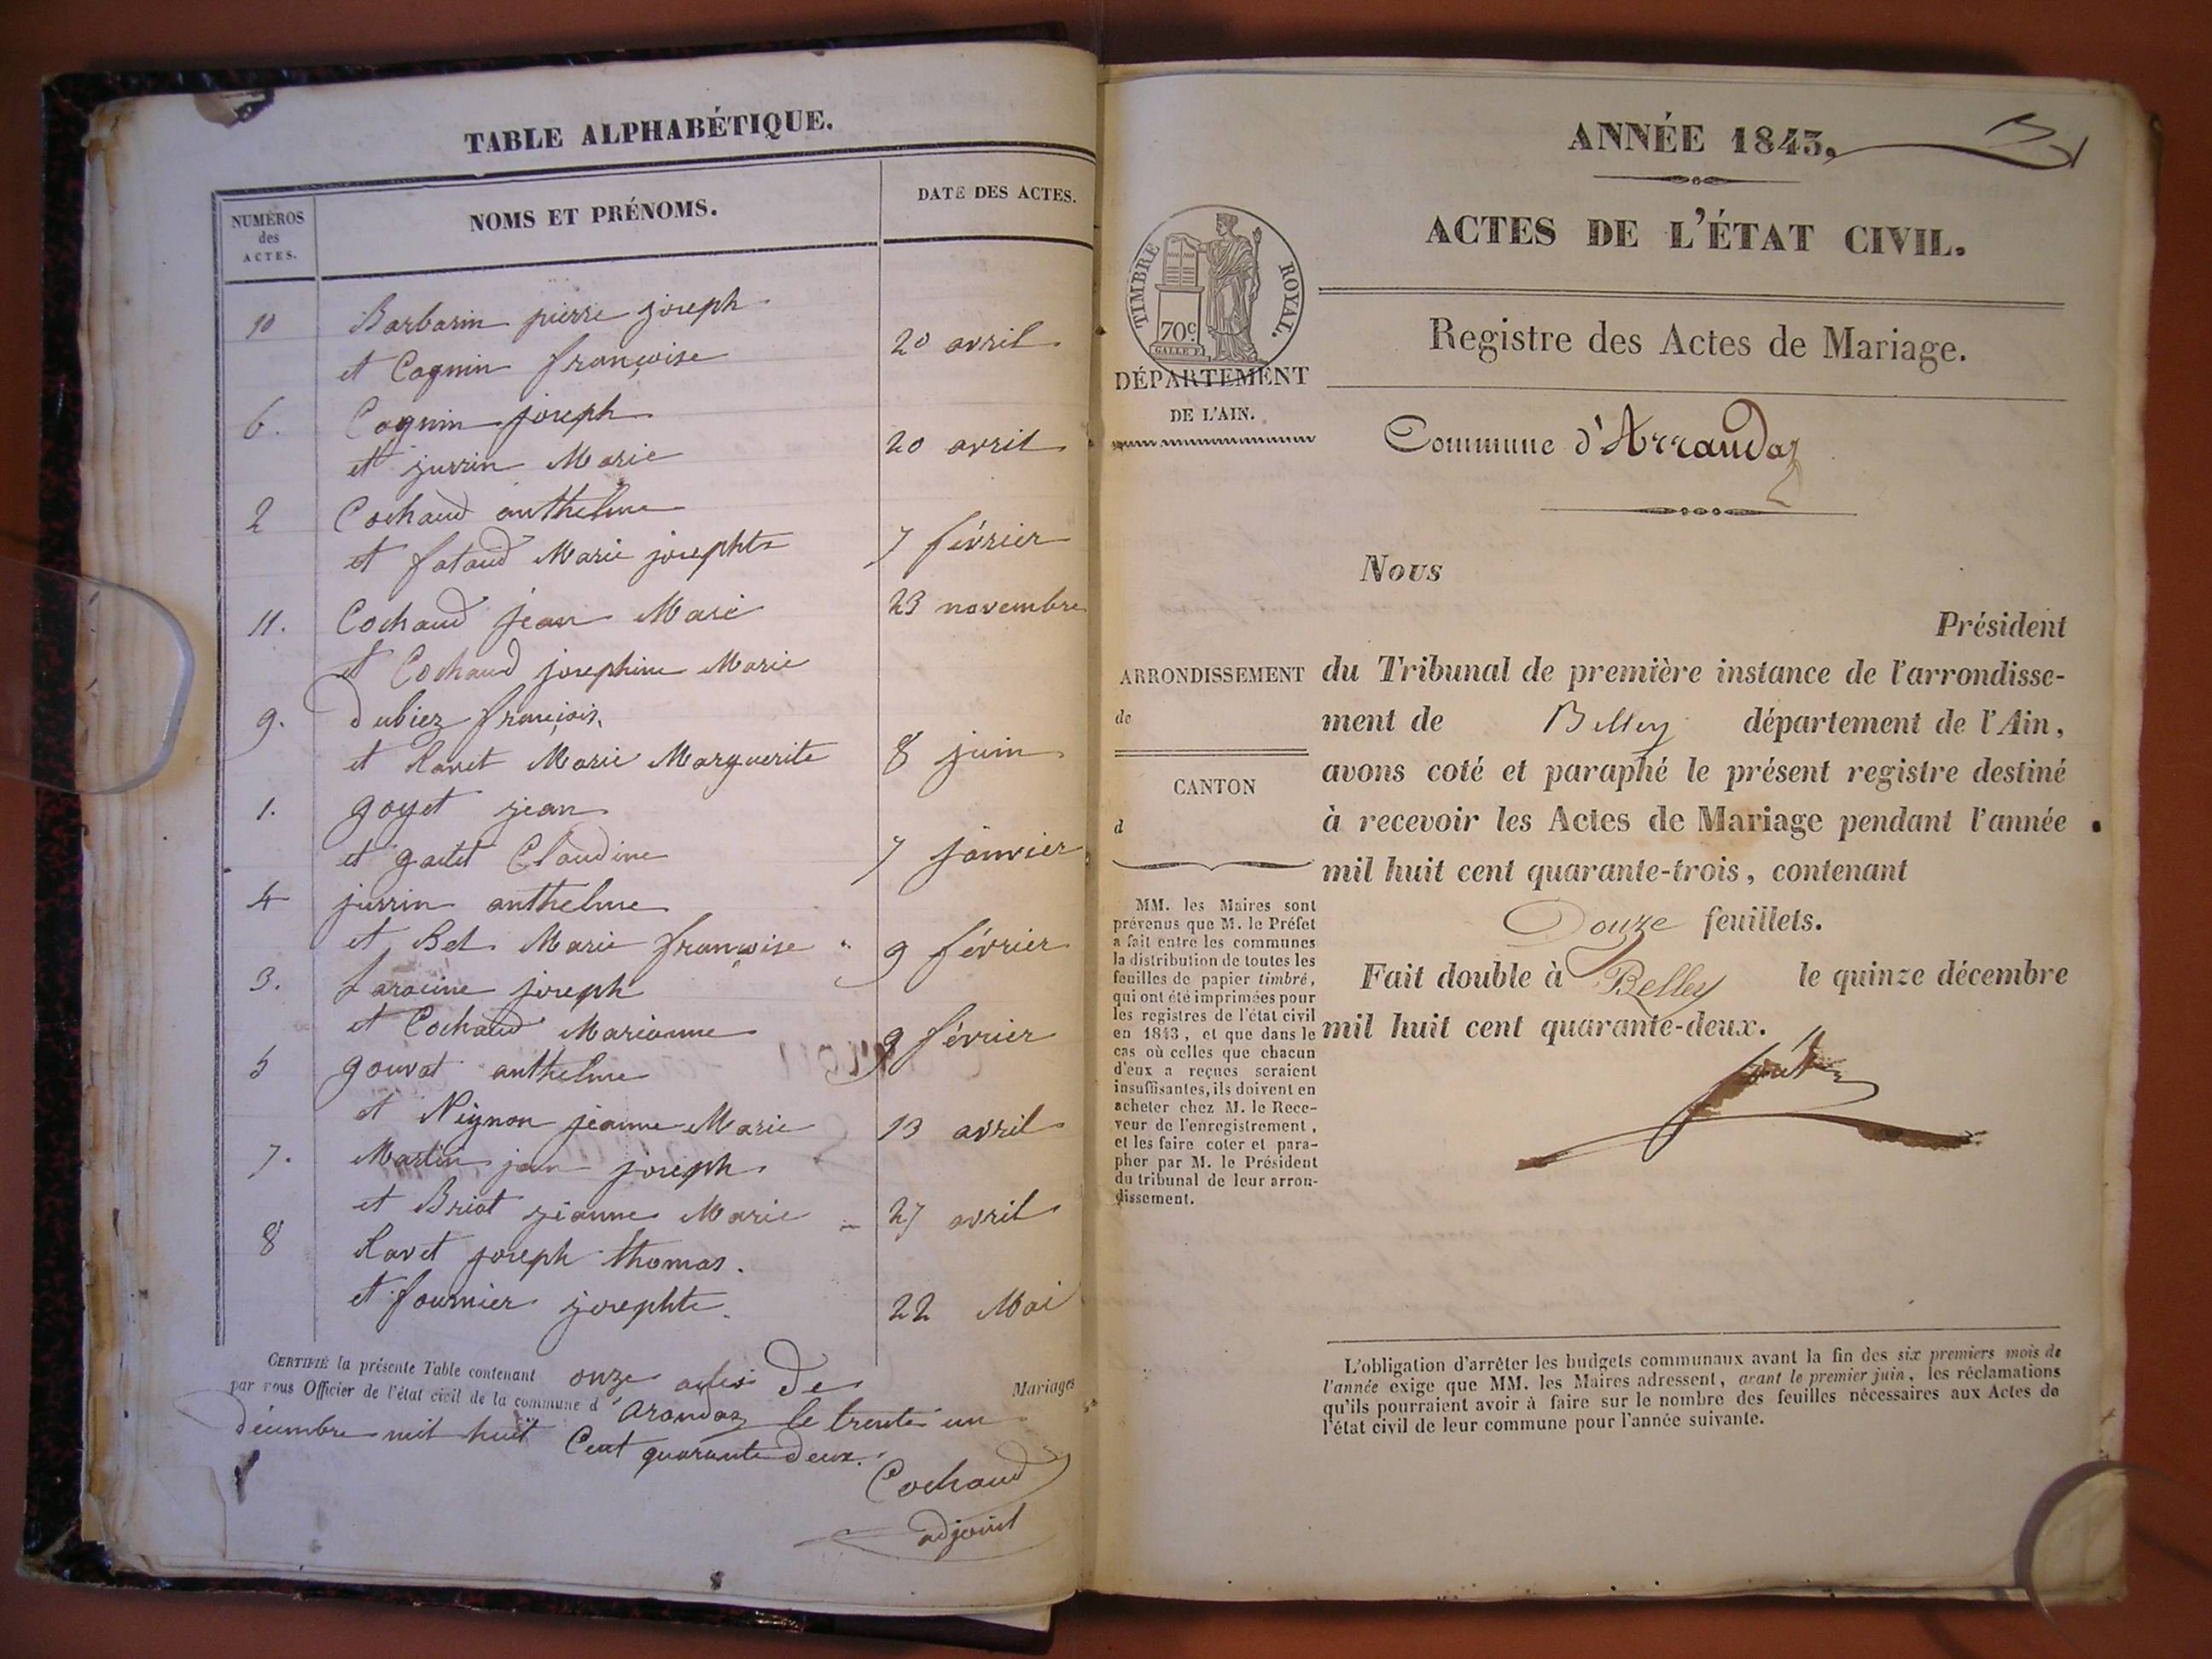 TABLE ALPHABÉTIQUE.
NUMÉROS des ACTES.
NOMS ET PRÉNOMS.
DATE DES ACTES.
10 Barbarin pierre joseph
et Cognin françoise 20 avril
6. Cognin joseph
et juvrin Marie 20 avril
2 Cochaud anthelme
et fataud Marie josephte 7 février
11. Cochaud jean Marie 23 novembre
et Cochaud josephine Marie
9. dubiez françois
et Ravet Marie Marguerite 8 juin
1. goyet jean
et goitet Claudine 7 janvier
4 juvrin anthelme
et Bel Marie françoise 9 février
3. Laracine joseph
et Cochaud Marianne 9 février
5 gouvat anthelme
et Neynon jeanne Marie 13 avril
7. Martin jean joseph
et Briot jeanne Marie 27 avril
8 Ravet joseph thomas.
et fournier josephte. 22 Mai
CERTIFIÉ la présente Table contenant onze actes de Mariages
par nous Officier de l'état civil de la commune d'arandaz le trente un
décembre mil huit Cent quarante deux.
Cochaud
adjoint
ANNÉE 1843,
ACTES DE L'ÉTAT CIVIL.
TIMBRE ROYAL.
70c
GALLE F.
DÉPARTEMENT
DE L'AIN.
Registre des Actes de Mariage.
Commune d'Arrandaz
Nous
Président
ARRONDISSEMENT
de
CANTON
d
du Tribunal de première instance de l'arrondisse-
ment de Belley département de l'Ain,
avons coté et paraphé le présent registre destiné
à recevoir les Actes de Mariage pendant l'année
mil huit cent quarante-trois, contenant
Douze feuillets.
Fait double à Belley le quinze décembre
mil huit cent quarante-deux.
MM. les Maires sont
prévenus que M. le Préfet
a fait entre les communes
la distribution de toutes les
feuilles de papier timbré,
qui ont été imprimées pour
les registres de l'état civil
en 1843, et que dans le
cas où celles que chacun
d'eux a reçues seraient
insuffisantes, ils doivent en
acheter chez M. le Rece-
veur de l'enregistrement,
et les faire coter et para-
pher par M. le Président
du tribunal de leur arron-
dissement.
L'obligation d'arrêter les budgets communaux avant la fin des six premiers mois de
l'année exige que MM. les Maires adressent, avant le premier juin, les réclamations
qu'ils pourraient avoir à faire sur le nombre des feuilles nécessaires aux Actes de
l'état civil de leur commune pour l'année suivante.